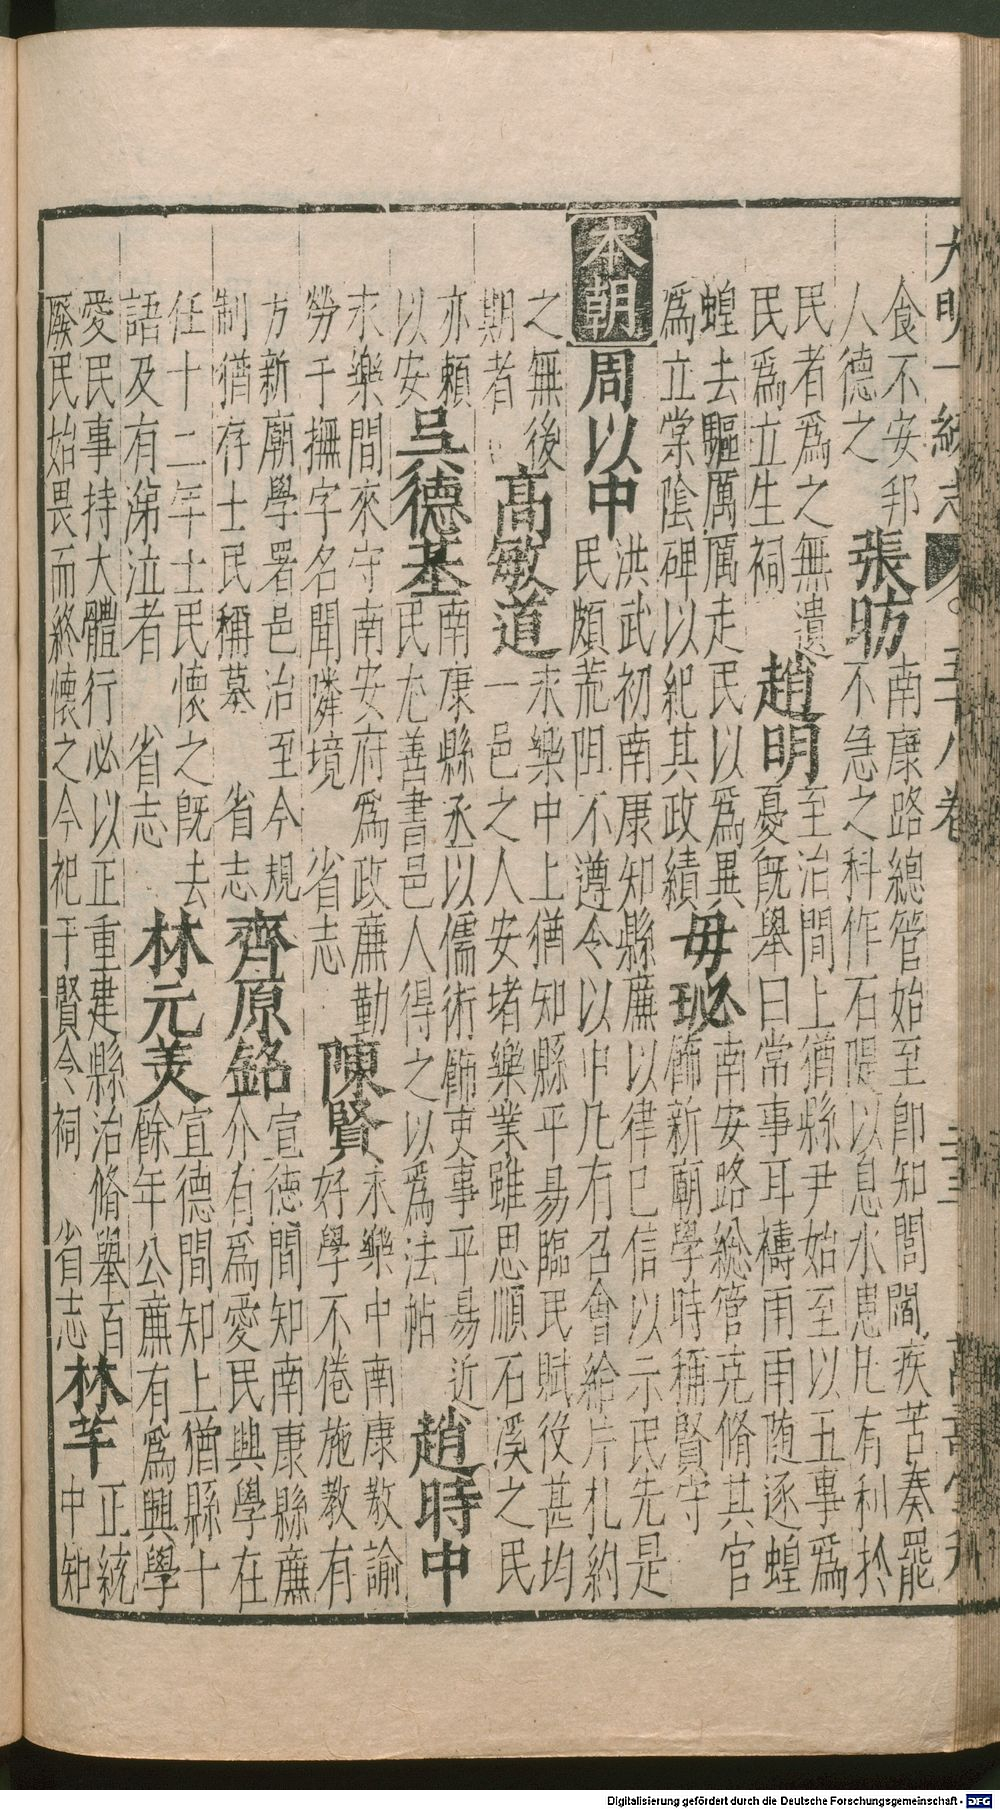 大明一統志 五十八卷 二三 萬壽堂刊
食不安邦
人德之
張昉
南康路總管始至卽知閭閻疾苦奏罷
不急之科作石隄以息水患凡有利於
民者爲之無遺
民爲立生祠
趙明
至治間上猶縣尹始至以五事爲
憂旣舉曰常事耳禱雨雨随逐蝗
蝗去驅厲厲走民以爲異
爲立棠陰碑以紀其政績
毋玭
南安路總管克脩其官
飾新廟學時稱賢守
本朝
周以中
洪武初南康知縣廉以律已信以示民先是
民頗荒阻不遵令以中凡有召會給片札約
之無後
期者
高敏道
永樂中上猶知縣平易臨民賦役甚均
一邑之人安堵樂業雖思順石溪之民
亦賴
以安
吳德基
南康縣丞以儒術飾吏事平易近
民尤善書邑人得之以爲法帖
趙時中
永樂間來守南安府爲政廉勤
勞于撫字名聞隣境 省志
陳賢
永樂中南康教諭
好學不倦施教有
方新廟學署邑治至今規
制猶存士民稱墓 省志
齊原銘
宣德間知南康縣廉
介有爲愛民興學在
任十二年士民懷之旣去
語及有涕泣者 省志
林元美
宣德間知上猶縣十
餘年公廉有爲興學
愛民事持大體行必以正重建縣治脩舉百
廢民始畏而終懷之今祀于賢令祠 省志
林芊
正統
中知
Digitalisierung gefördert durch die Deutsche Forschungsgemeinschaft - DFG